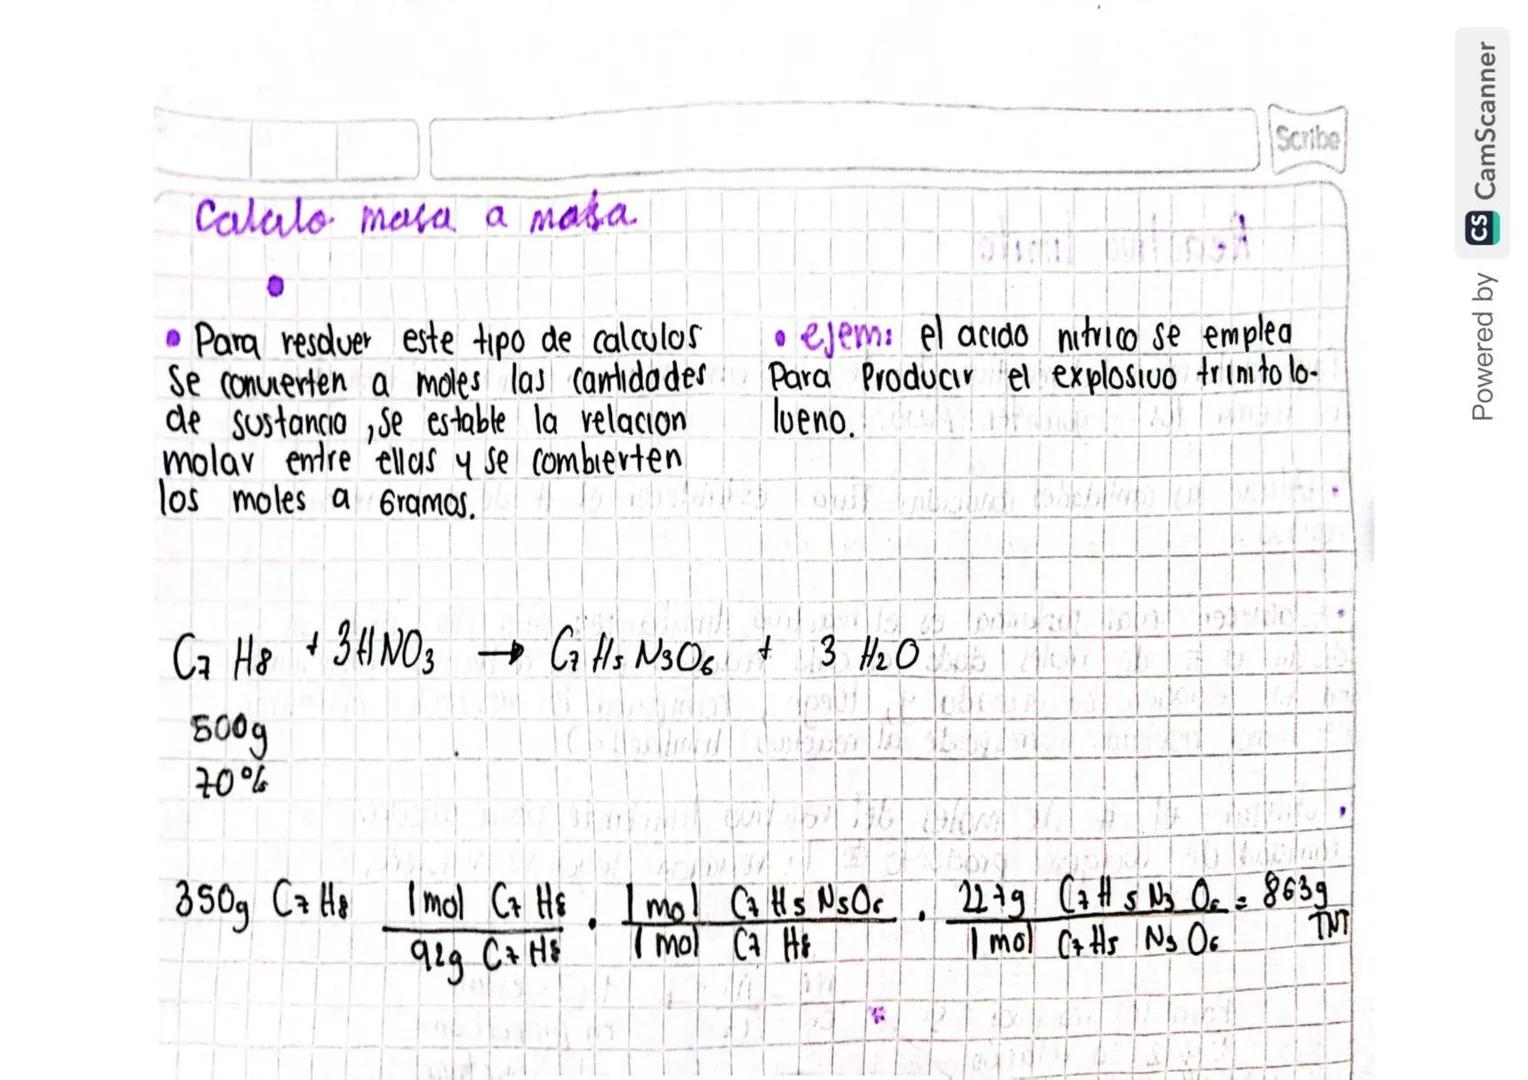 Scribe
Calculo masa a masa
• Para resolver este tipo de calculos
Se convierten a moles las cantidades
de sustancia, se estable la relacion
molar entre ellas y se combierten
los moles a Gramos.
• ejem: el acido nitrico se emplea
Para Producir el explosivo trinitolo-
lueno.
C7 H8 + 3HNO3 → C7 H5 N3O6 + 3 H2O
500g
70%
350g C7 H8 1 mol C7 H8 / 92g C7 H8 · 1 mol C7 H5 N3O6 / 1 mol C7 H8 · 227g C7 H5 N3 O6 / 1 mol C7 H5 N3 O6 = 863g
TNT
Powered by CS CamScanner